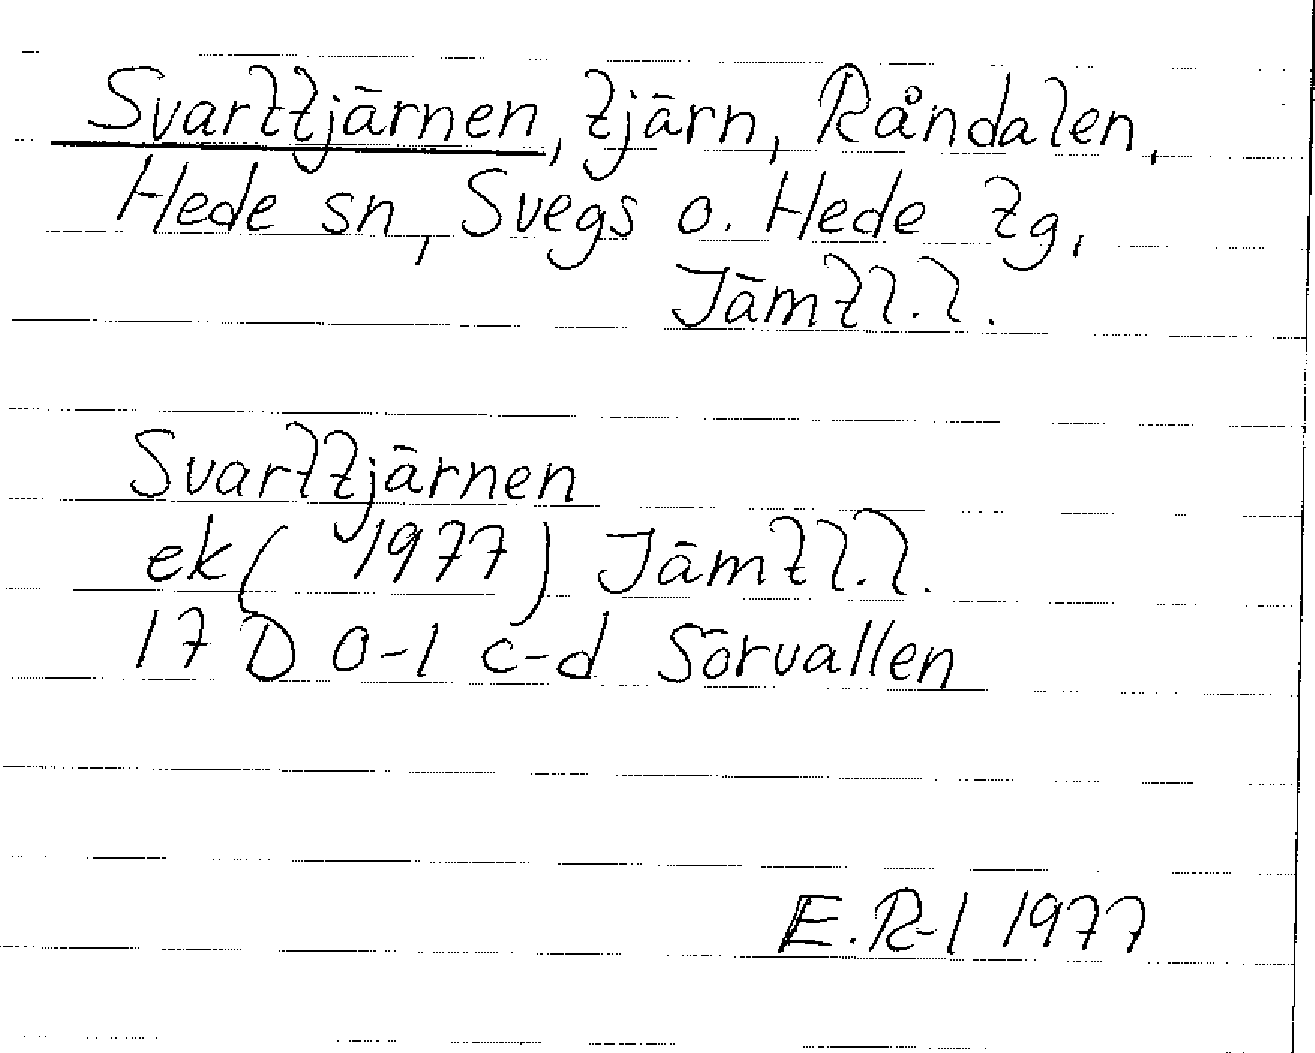 Svarttjärnen, tjärn, Råndalen,
Hede sn, Svegs o. Hede tg,
Jämtl.l.
Svarttjärnen
ek ( 1977 ) Jämtl.l.
17 D 0-1 c-d Sörvallen
E.R-l 1977